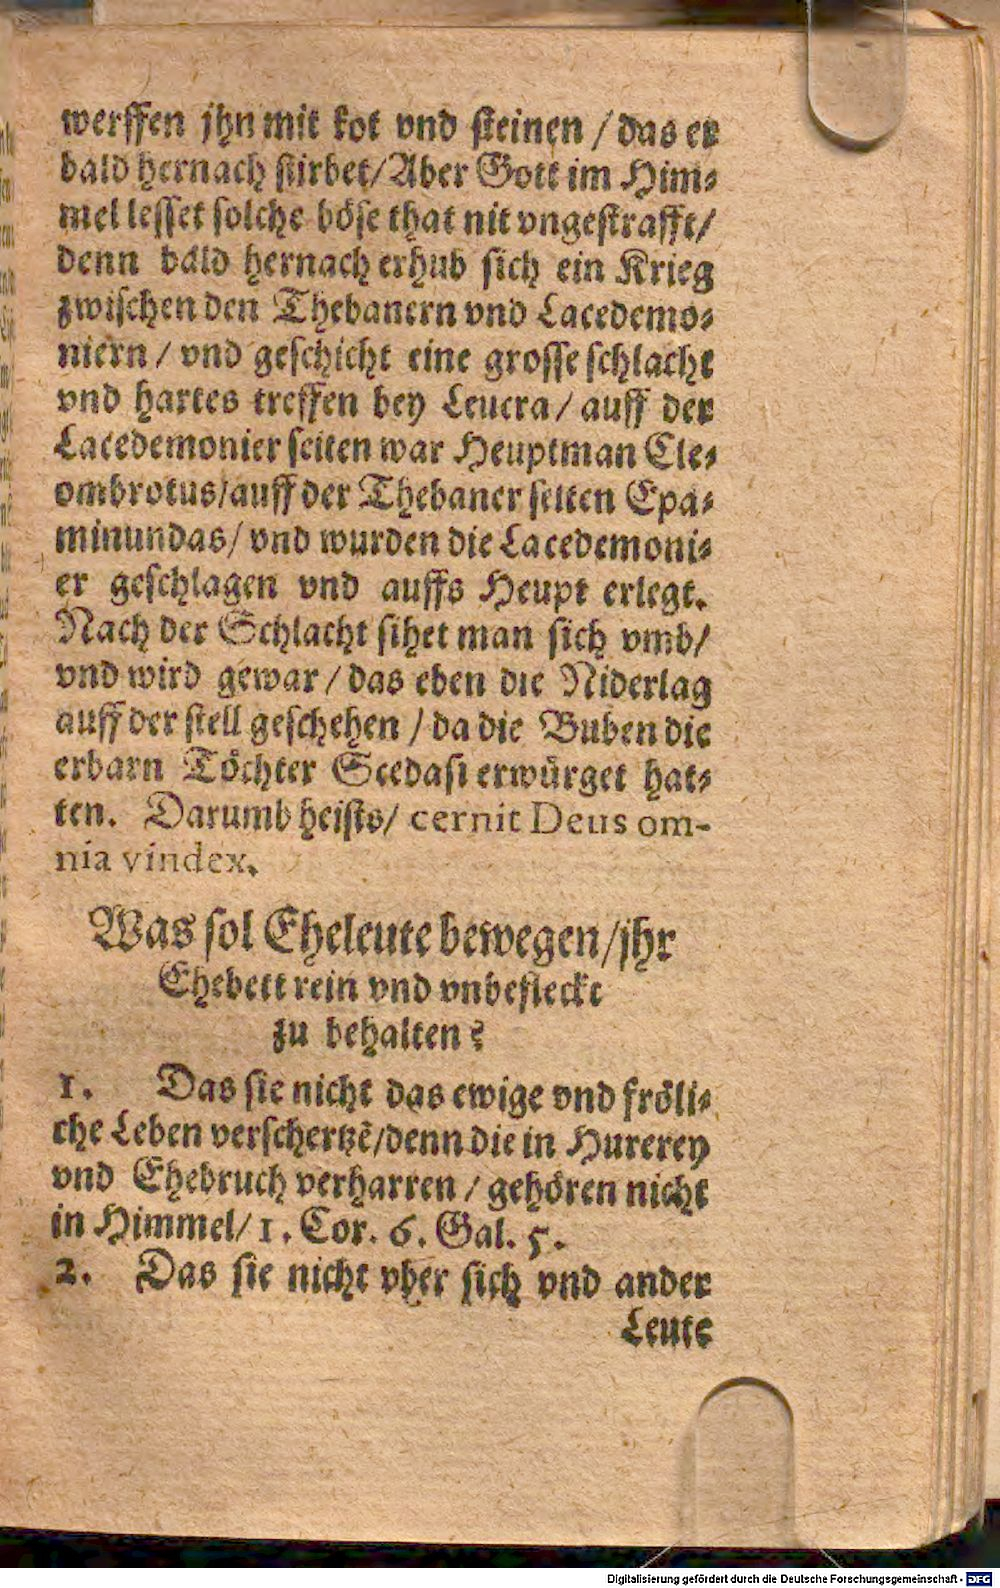 werffen jhn mit kot vnd steinen / das er
bald hernach stirbet/ Aber Gott im Him⸗
mel lesset solche böse that nit vngestrafft/
denn bald hernach erhub sich ein Krieg
zwischen den Thebanern vnd Lacedemo⸗
niern / vnd geschicht eine grosse schlacht
vnd hartes treffen bey Leucra/ auff der
Lacedemonier seiten war Heuptman Cle⸗
ombrotus/auff der Thebaner seiten Epa⸗
minundas/ vnd wurden die Lacedemoni⸗
er geschlagen vnd auffs Heupt erlegt.
Nach der Schlacht sihet man sich vmb/
vnd wird gewar / das eben die Niderlag
auff der stell geschehen / da die Buben die
erbarn Töchter Scedasi erwürget hat⸗
ten. Darumb heists/ cernit Deus om-
nia vindex.
Was sol Eheleute bewegen/jhr
Ehebett rein vnd vnbefleckt
zu behalten?
1. Das sie nicht das ewige vnd fröli⸗
che Leben verschertzẽ/denn die in Hurerey
vnd Ehebruch verharren / gehören nicht
in Himmel/ 1. Cor. 6. Gal. 5.
2. Das sie nicht vber sich vnd ander
Leute
Digitalisierung gefördert durch die Deutsche Forschungsgemeinschaft - DFG